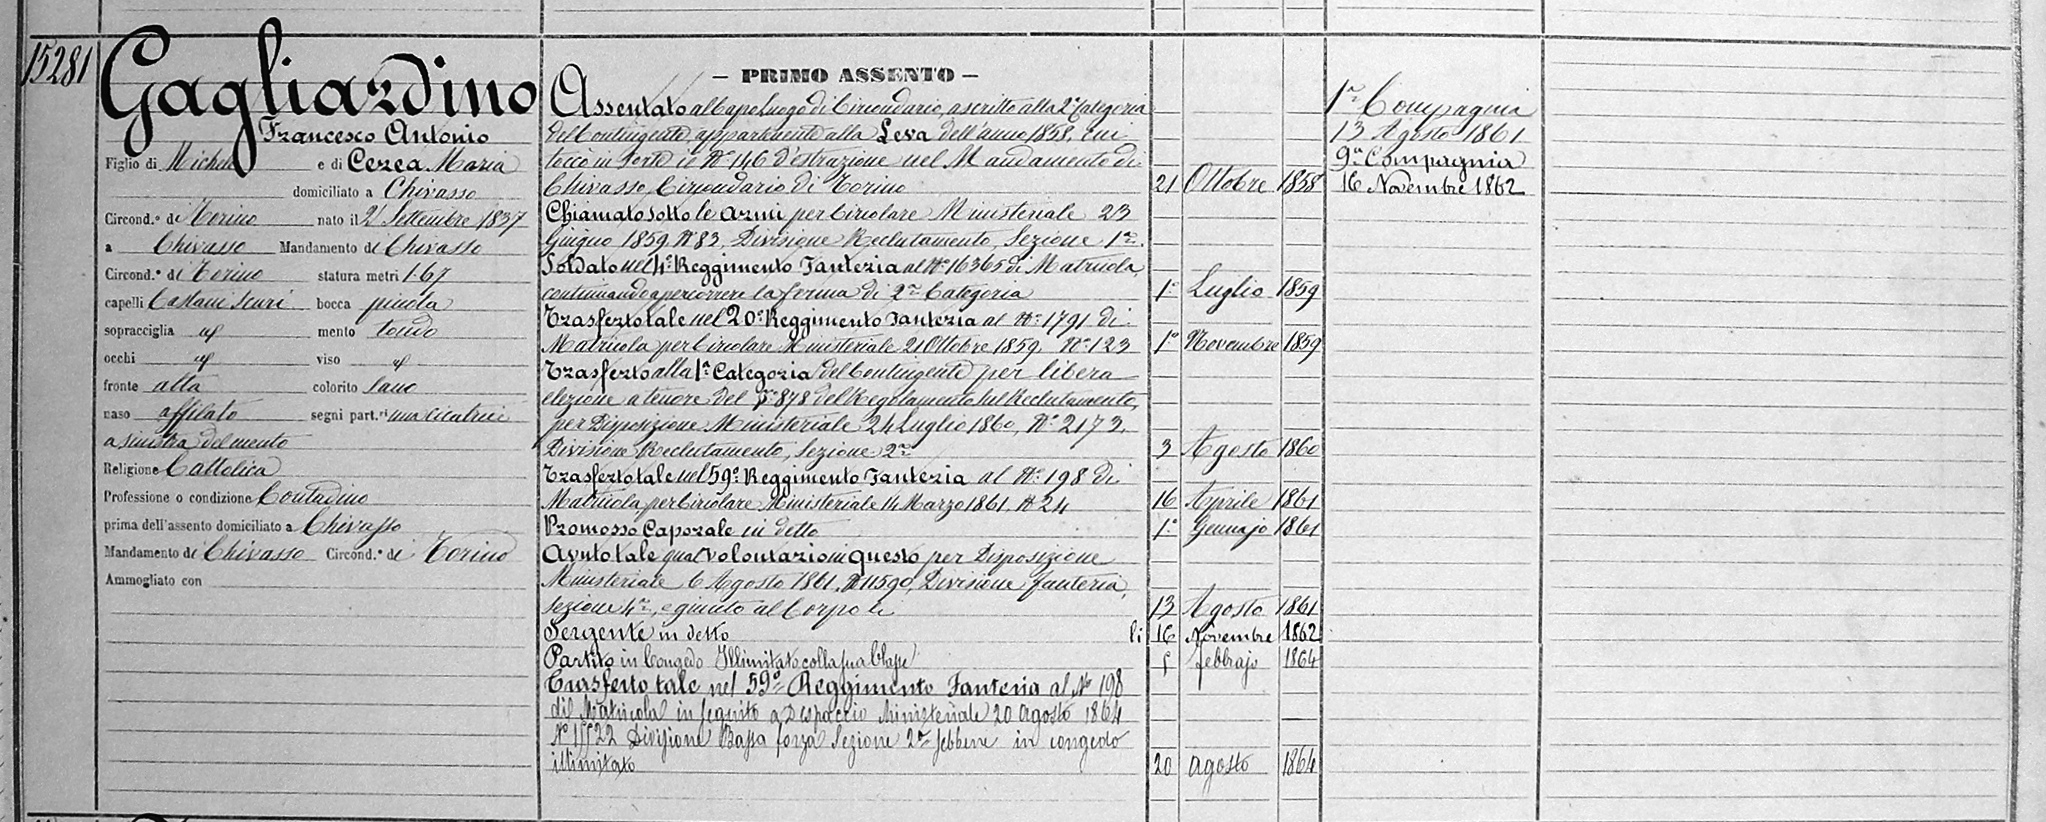 15281
Gagliardino
Francesco Antonio
Figlio di Michele e di Cerea Maria
domiciliato a Chivasso
Circond.o di Torino nato il 21 Settembre 1837
a Chivasso Mandamento di Chivasso
Circond.o di Torino statura metri 1.67
capelli Castani scuri bocca piccola
sopracciglia id mento tondo
occhi id viso id
fronte alta colorito sano
naso affilato segni part.ri una cicatrice
a sinistra del mento
Religione Cattolica
Professione o condizione Contadino
prima dell'assento domiciliato a Chivasso
Mandamento di Chivasso Circond.o di Torino
Ammogliato con
— PRIMO ASSENTO —
Assentato al Capo Luogo di Circondario, ascritto alla 2a Categoria
del Contingente appartenente alla Leva dell'anno 1858, cui
toccò in sorte il No 146 d'estrazione nel Mandamento di
Chivasso, Circondario di Torino 21 Ottobre 1858
Chiamato sotto le armi per Circolare Ministeriale 23
Giugno 1859 No 83, Divisione Reclutamento, Sezione 1a.
Soldato nel 4o Reggimento Fanteria al No 16365 di Matricola
continuando a percorrere la ferma di 2a Categoria 1o Luglio 1859
Trasferto tale nel 20o Reggimento Fanteria al No 1791 di
Matricola per Circolare Ministeriale 21 Ottobre 1859 No 123 1o Novembre 1859
Trasferto alla 1a Categoria del Contingente per libera
elezione a tenore del 878 del Regolamento sul Reclutamento,
per Disposizione Ministeriale 24 Luglio 1860, No 2173,
Divisione Reclutamento, Sezione 2a 3 Agosto 1860
Trasferto tale nel 59o Reggimento Fanteria al No 198 di
Matricola, per Circolare Ministeriale 14 Marzo 1861 No 24 16 Aprile 1861
Promosso Caporale in detto 1o Gennajo 1861
Avuto tale qual volontario in questo per Disposizione
Ministeriale 6 Agosto 1861, No 11590, Divisione fanteria,
Sezione 4a, e giunto al Corpo li 13 Agosto 1861
Sergente in detto li 16 Novembre 1862
Partito in Congedo Illimitato colla sua Classe febbrajo 1864
Trasferto tale nel 59o Reggimento Fanteria al No 198
di Matricola in seguito a Dispaccio Ministeriale 20 Agosto 1864
Divisione Bassa forza Sezione 2a sebbene in congedo
illimitato 20 agosto 1864
1a Compagnia
13 Agosto 1861
9a Compagnia
16 Novembre 1862